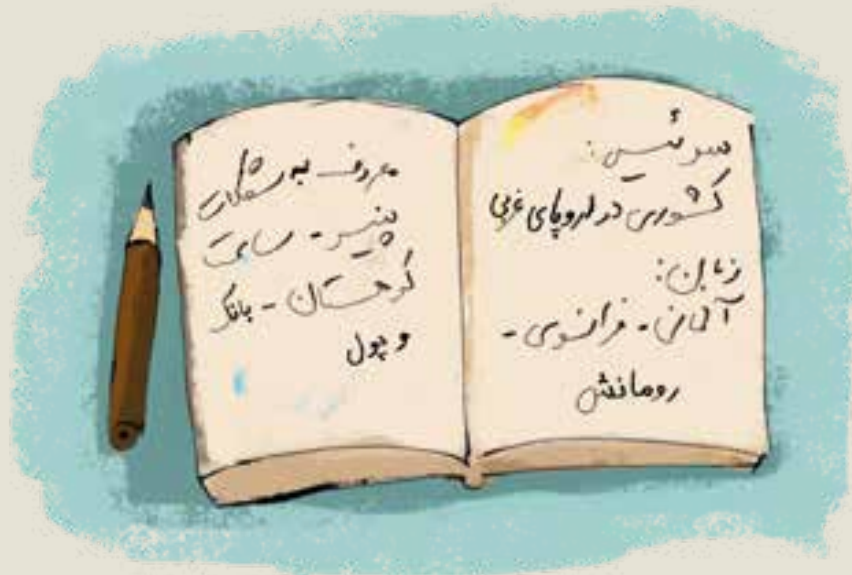 سوئیس:
کشوری در اروپای غربی
زبان:
آلمانی - فرانسوی -
رومانش
معروف به شکلات
پنیر - ساعت
کوهستان - بانک
و پول